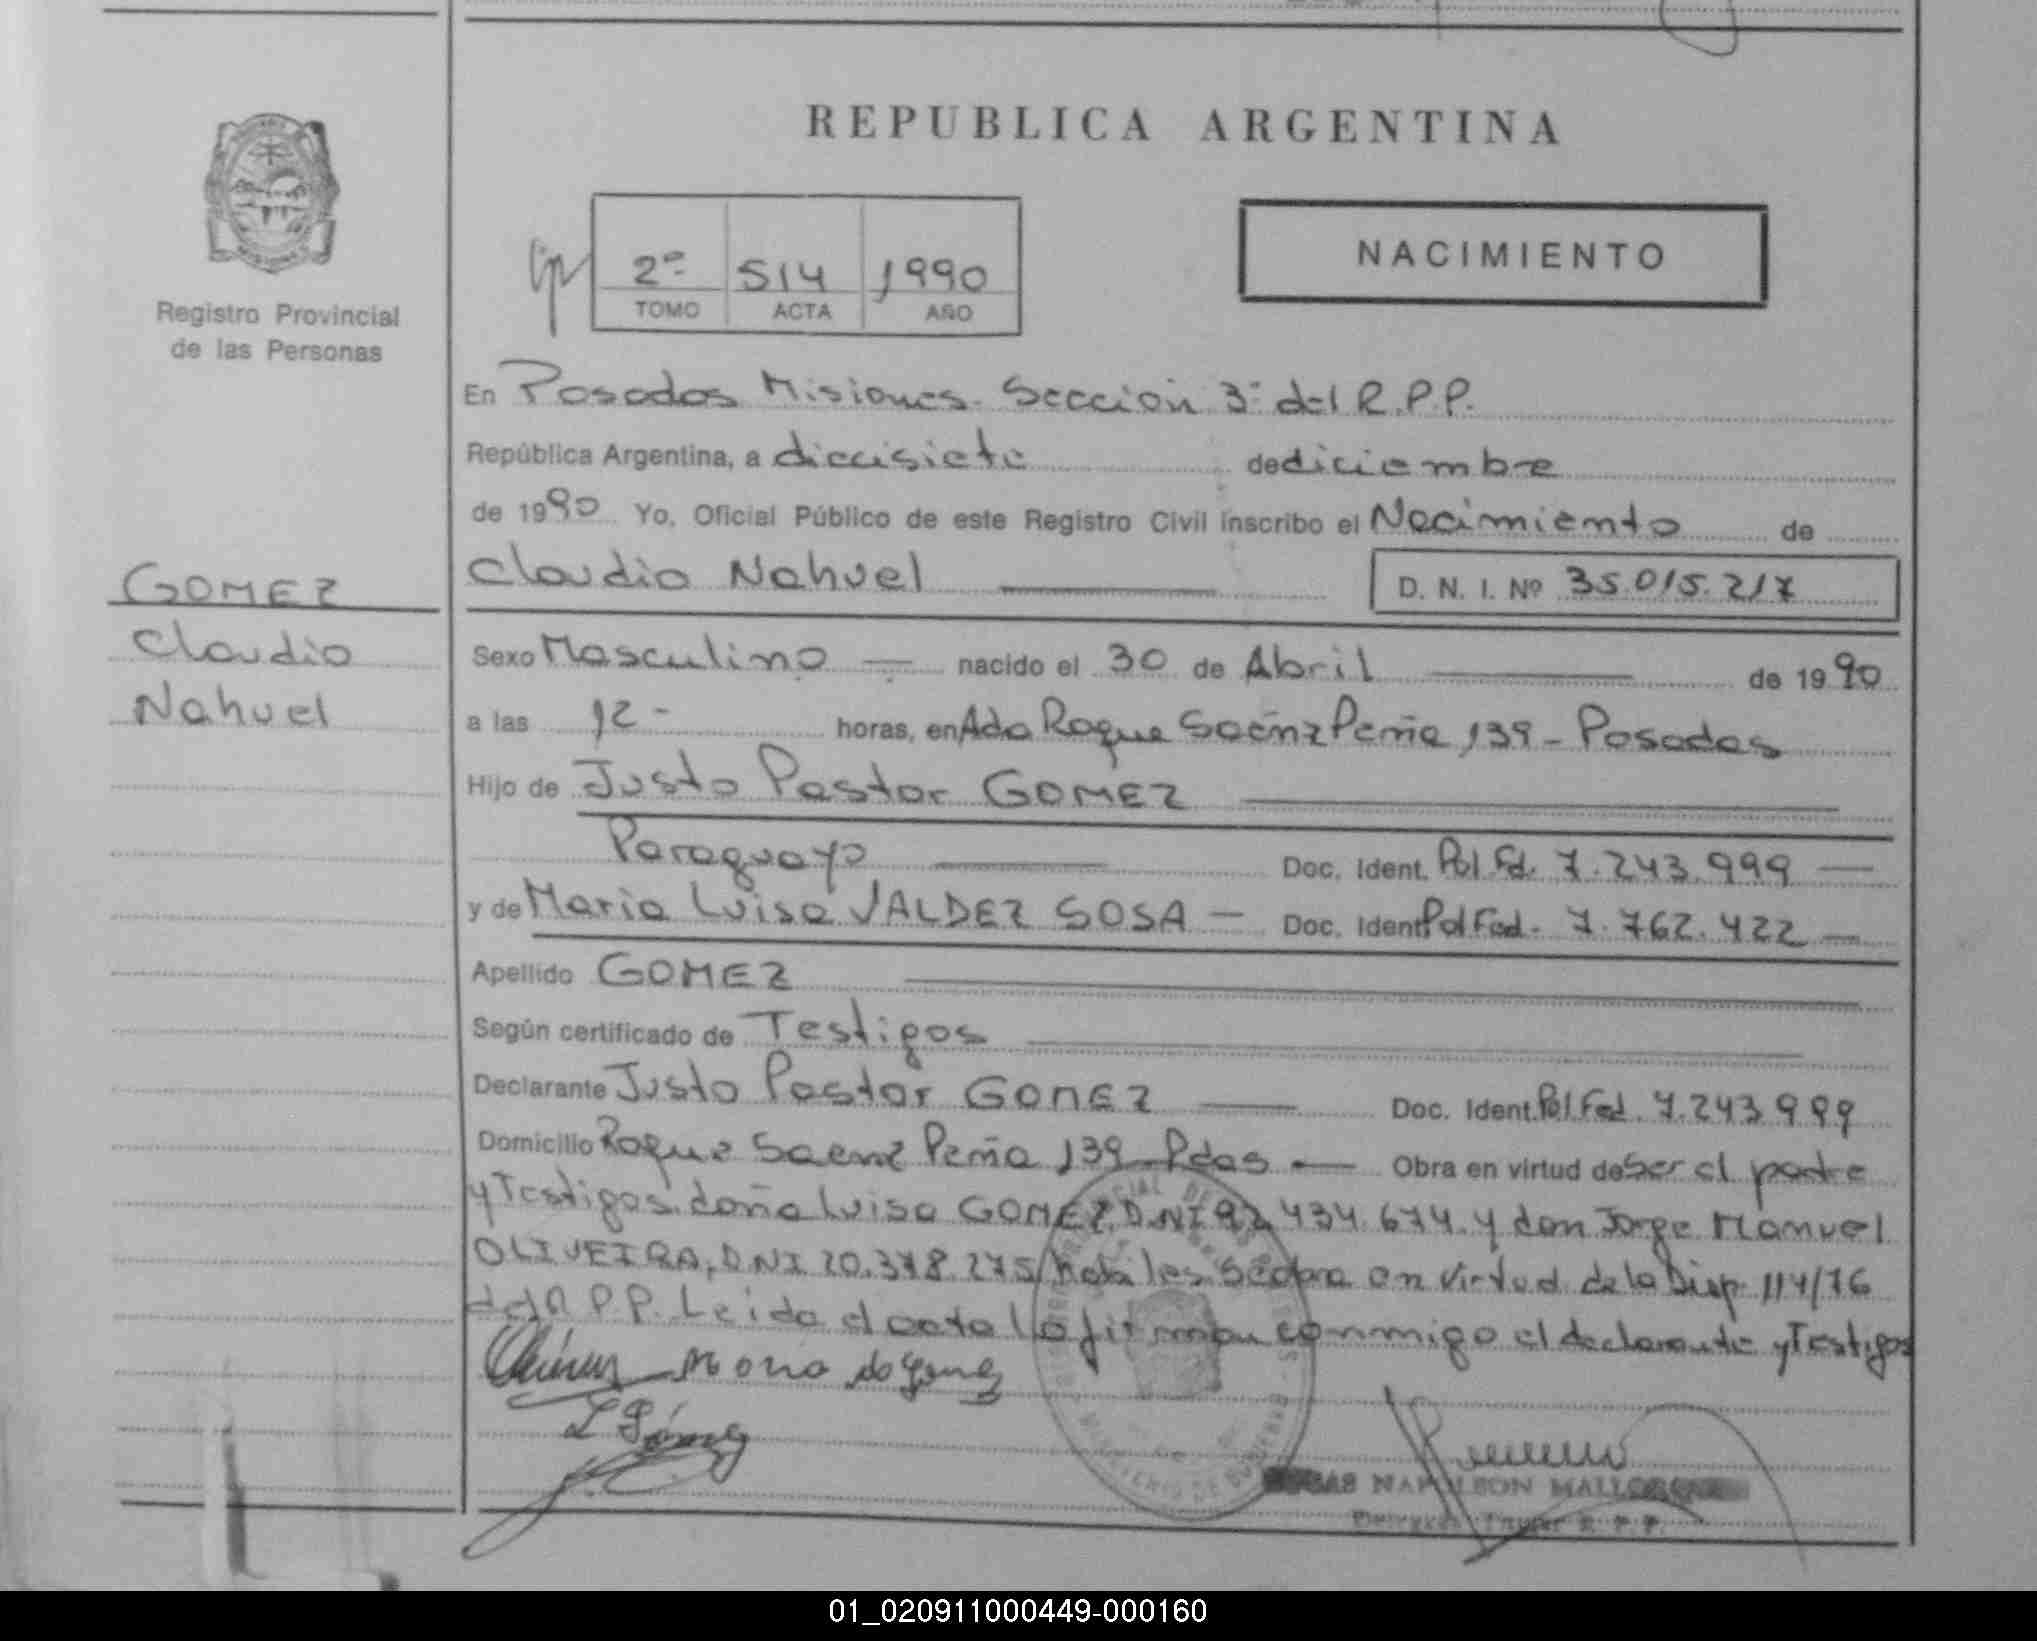 REPUBLICA ARGENTINA
2º 514 1990
TOMO ACTA AÑO
NACIMIENTO
Registro Provincial
de las Personas
En Posadas Misiones. Sección 3º del R.P.P.
República Argentina, a diecisiete de diciembre
de 1990 Yo, Oficial Público de este Registro Civil inscribo el Nacimiento de
Claudio Nahuel D. N. I. Nº 35.015.217
GOMEZ
Claudio
Nahuel
Sexo Masculino nacido el 30 de Abril de 1990
a las 12 - horas, en Avda Roque Saénz Peña 139 - Posadas
Hijo de Justo Pastor GOMEZ
Paraguayo Doc. Ident. Pol. Fd. 7.243.999
y de Maria Luisa VALDEZ SOSA - Doc. Ident Pol Fed. 7.762.422
Apellido GOMEZ
Según certificado de Testigos
Declarante Justo Pastor GOMEZ Doc. Ident. Pol. Fed. 7.243.999
Domicilio Roque Saenz Peña 139 Pdas - Obra en virtud de ser el padre
y Testigos doña Luisa GOMEZ, D.N.I 92.434.674. y don Jorge Manuel
OLIVEIRA, DNI 20.378.275 habiles. Se labra en virtud de la Disp. 114/76
del R.P.P. Leida el acta la firman conmigo el declarante y Testigos
L Gómez
NAPOLEON MALLORQUIN
R. P. P.
01_020911000449-000160